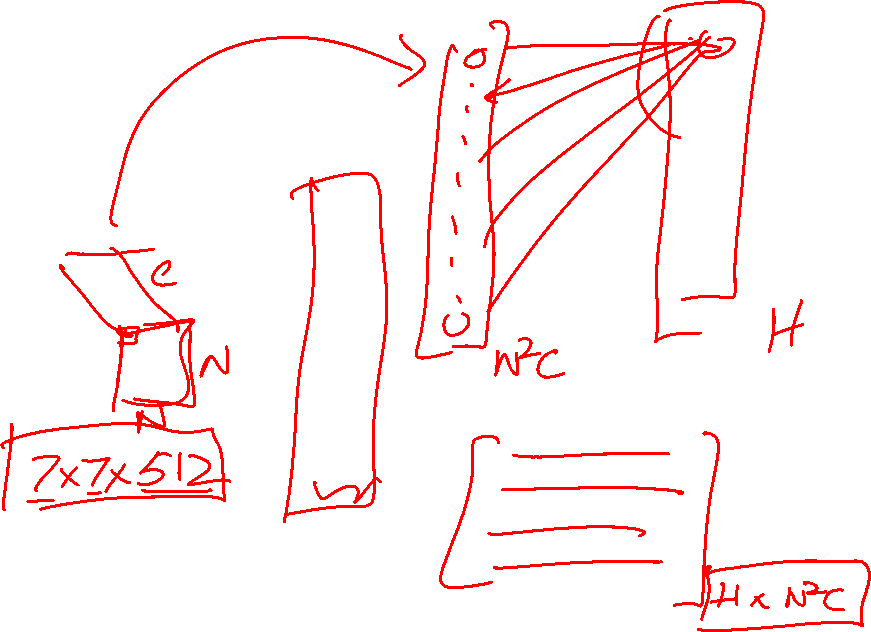 C
N
N
7x7x512
N²C
H
H x N²C